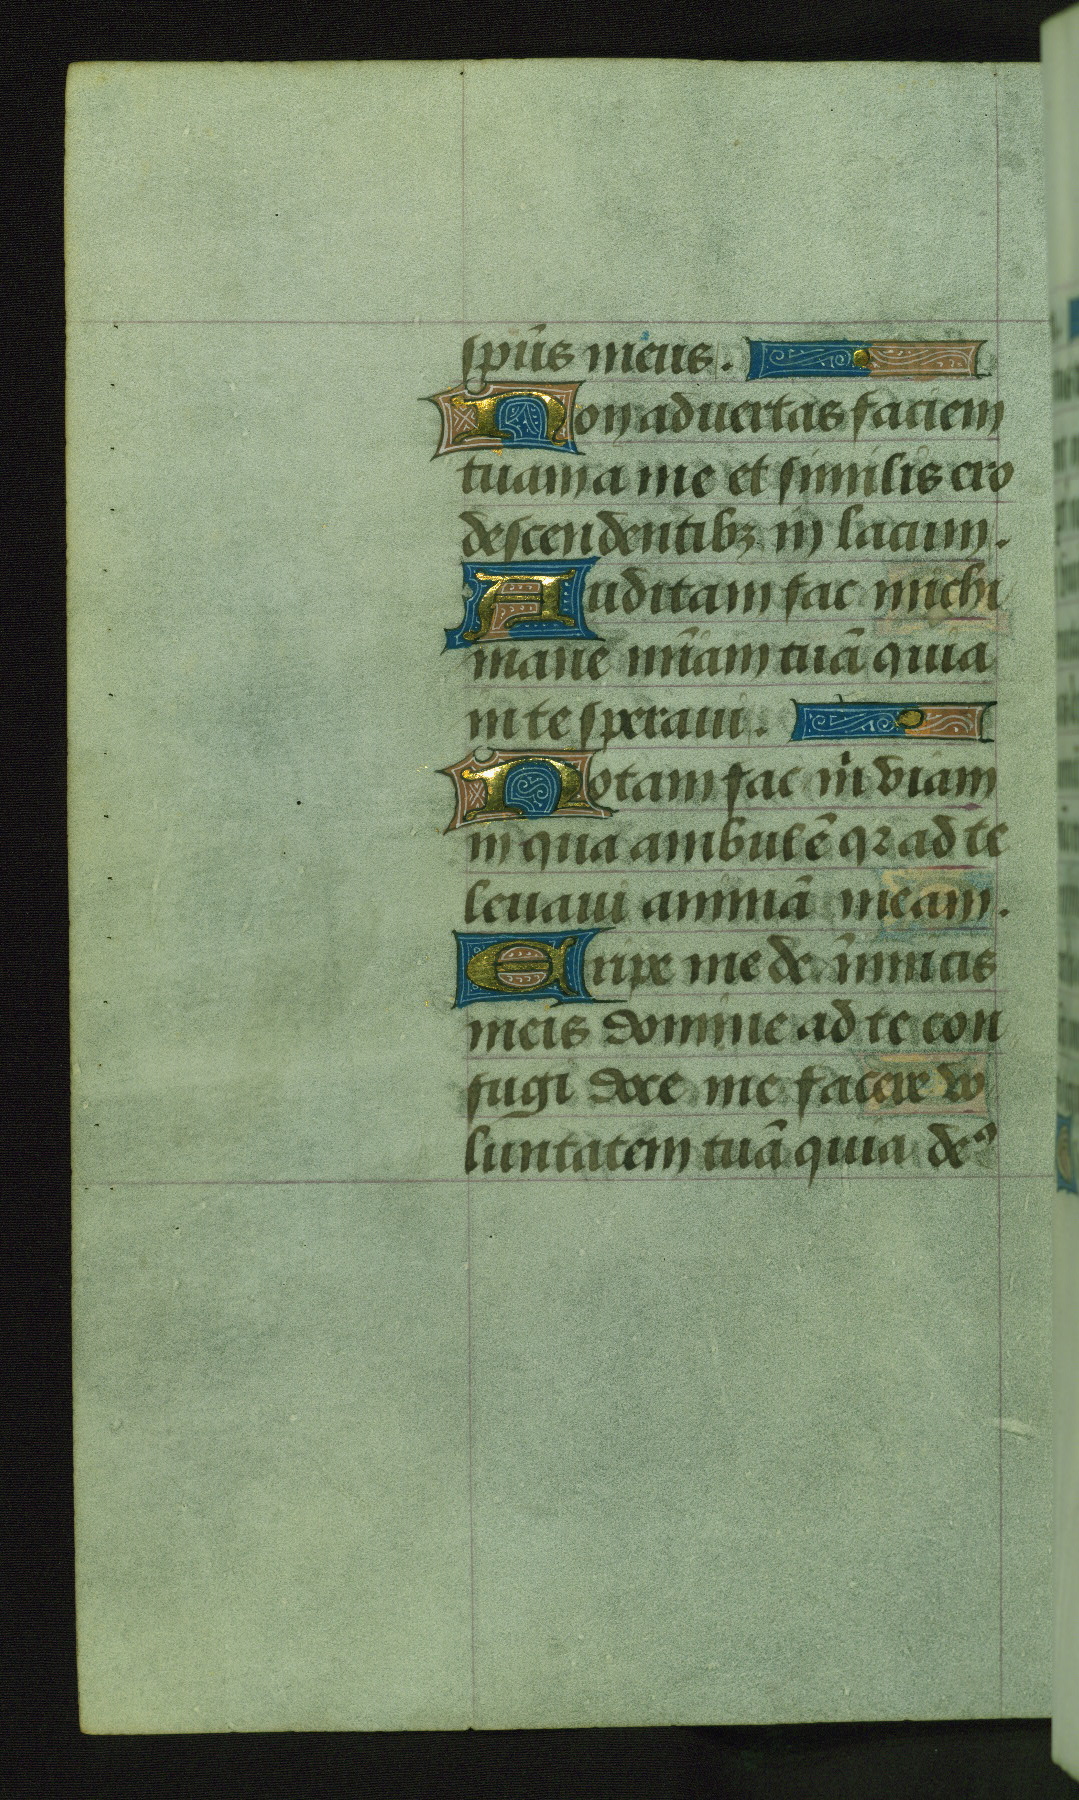 sp̄us meus.
Non advertas faciem
tuam a me et similis ero
descendentibꝫ in lacum.
Auditam fac michi
mane mīam tuā quia
in te speravi.
Notam fac m̄ viam
in qua ambulē qꝛ ad te
levavi animā meam.
Eripe me de īnimicis
meis domine ad te con
fugi doce me facere vo
luntatem tuā quia deꝰ